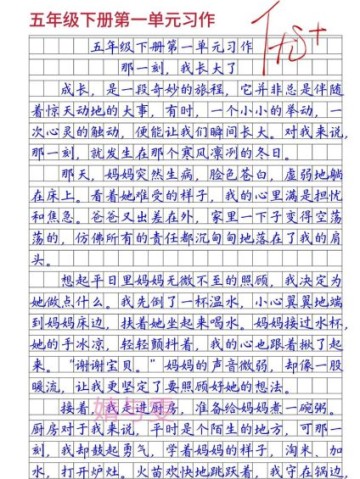 五年级下册第一单元习作
五年级下册第一单元习作
那一刻，我长大了
成长，是一段奇妙的旅程，它并非总是伴随
着惊天动地的大事，有时，一个小小的举动，一
次心灵的触动，便能让我们瞬间长大。对我来说，
那一刻，就发生在那个寒风凛冽的冬日。
那天，妈妈突然生病，脸色苍白，虚弱地躺
在床上。看着她难受的样子，我的心里满是担忧
和焦急。爸爸又出差在外，家里一下子变得空荡
荡的，仿佛所有的责任都沉甸甸地落在了我的肩
头。
想起平日里妈妈无微不至的照顾，我决定为
她做点什么。我先倒了一杯温水，小心翼翼地端
到妈妈床边，扶着她坐起来喝水。妈妈接过水杯，
她的手冰凉，轻轻颤抖着，我的心也跟着揪了起
来。“谢谢宝贝。”妈妈的声音微弱，却像一股
暖流，让我更坚定了要照顾好她的想法。
接着，我走进厨房，准备给妈妈煮一碗粥。
厨房对于我来说，平时是个陌生的地方，可那一
刻，我却鼓起勇气，学着妈妈的样子，淘米、加
水，打开炉灶。火苗欢快地跳跃着，我守在锅边，